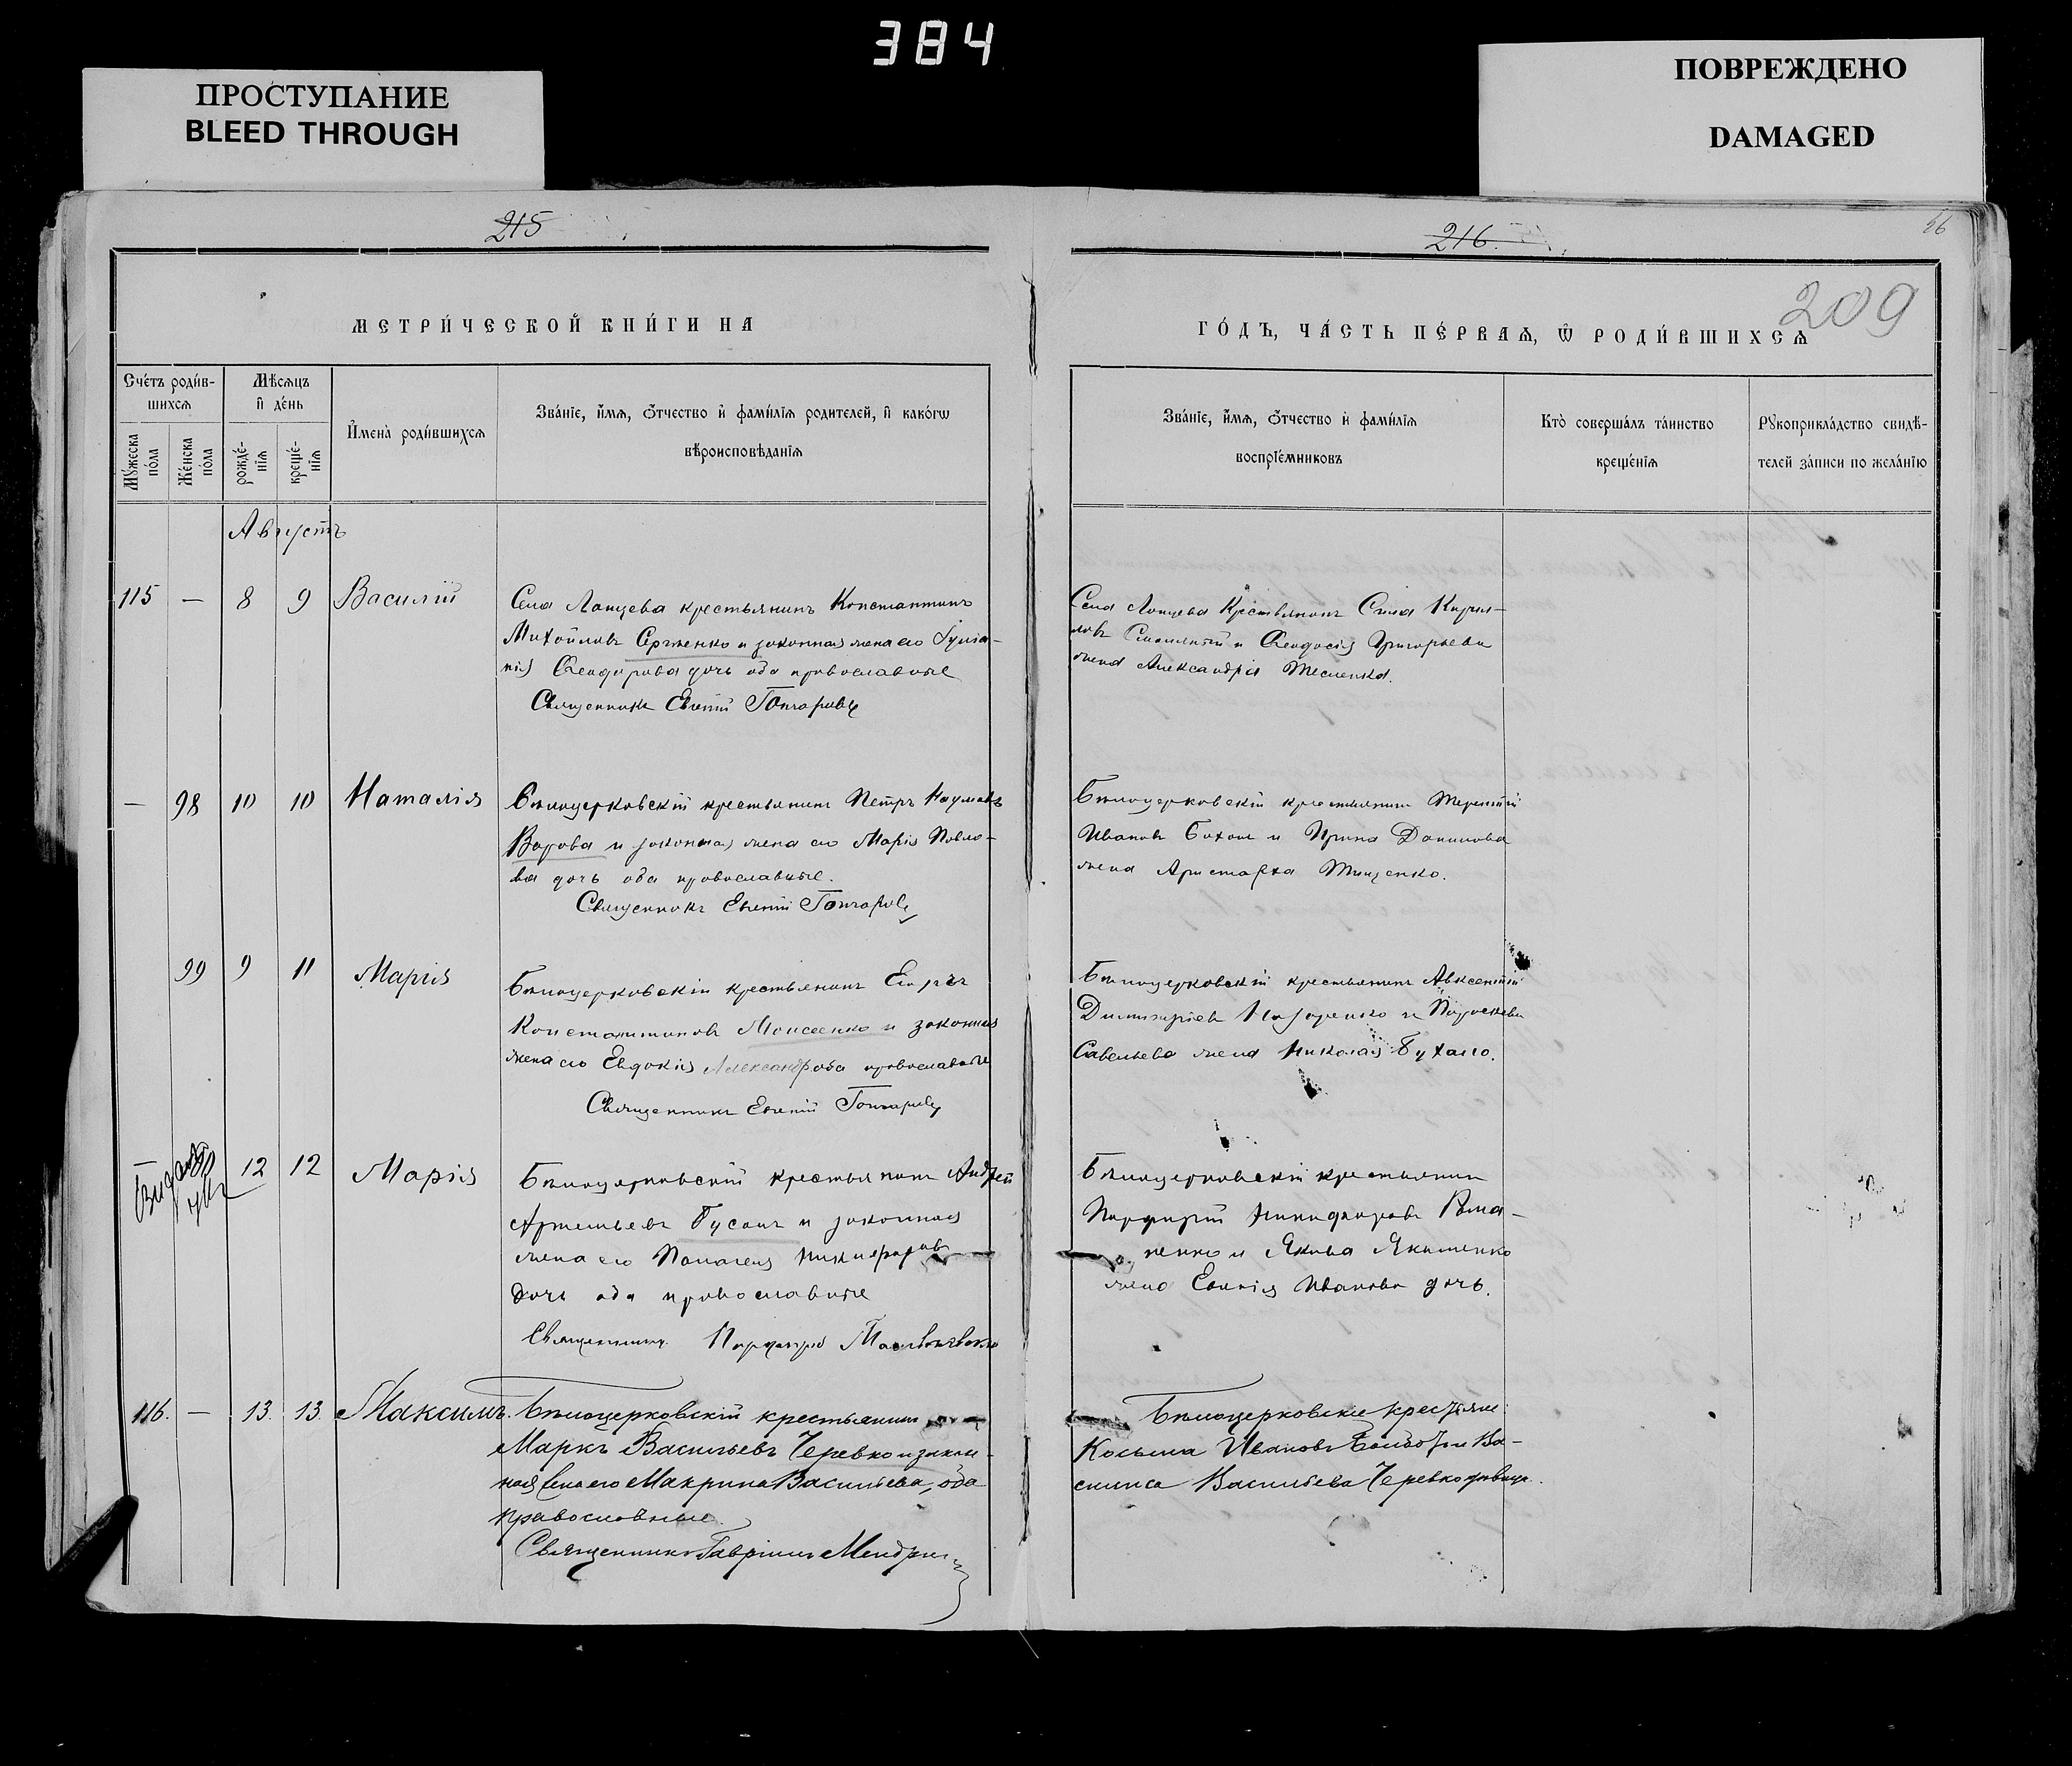 384
ПРОСТУПАНИЕ
BLEED THROUGH
ПОВРЕЖДЕНО
DAMAGED
215
МЕТРИ́ЧЕСКОЙ КНИ́ГИ НА
Сче́тъ роди́в-
шихсѧ
Мꙋ́жеска
по́ла
Же́нска
по́ла
Мѣ́сѧцъ
и҆ де́нь
рожде́-
нїѧ
креще́-
нїѧ
И҆мена̀ роди́вшихсѧ
Зва́нїе, и҆́мѧ, ѻ҆́тчество и҆ фами́лїѧ родителей, и҆ како́гѡ
вѣроисповѣ́данїѧ
Августъ
115 — 8 9 Василій
Села Ланцева крестьянинъ Константинъ
Михайловъ Сергіенко и законная жена его Іуліа-
нія Ѳеодорова дочь оба православные
Священникъ Евгеній Гончаровъ
— 98 10 10 Наталія
Бѣлоцерковскій крестьянинъ Петръ Наумовъ
Ворова и законная жена его Марія Павло-
ва дочь оба православные.
Священникъ Евгеній Гончаровъ
99 9 11 Марія
Бѣлоцерковскій крестьянинъ Егоръ
Константиновъ Моисеенко и законная
жена его Евдокія Александрова православные
Священникъ Евгеній Гончаровъ
— 12 12 Марія
Бѣлоцерковскій крестьянинъ Андрей
Артемьевъ Бусанъ и законная
жена его Пелагея Никифорова
дочь оба православные
Священникъ Порфирій
116. — 13. 13. Максимъ.
Бѣлоцерковскій крестьянинъ
Маркъ Васильевъ Черевко и закон-
ная жена его Макрина Васильева, оба
православные.
Священникъ Гавріилъ
216.
56
209
ГО́ДЪ, ЧА́СТЬ ПЕ́РВАѦ, Ѽ РОДИ́ВШИХСѦ
Зва́нїе, и҆́мѧ, ѻ҆́тчество и҆ фами́лїѧ
воспрїе́мниковъ
Кто̀ соверша́лъ та́инство
креще́нїѧ
Рꙋкоприкла́дство свидѣ́-
телей за́писи по жела́нїю
Села Ланцева Крестьянинъ Сила Кирил-
ловъ и Ѳеодосія Григорьева
жена Александрія Тесленка.
Бѣлоцерковскій крестьянинъ Терентій
Ивановъ и Ирина Данилова
жена Аристарха Тищенко.
Бѣлоцерковскій крестьянинъ Авксентій
Димитріевъ Назаренко и Параскева
Савельева жена Николая Бухало.
Бѣлоцерковскій крестьянинъ
Порфирій Никифоровъ Рома-
ненко и Якова Якименко
жена Евгенія Иванова дочь.
Бѣлоцерковскіе крестьяне:
Косьма Ивановъ и Ва-
силиса Васильева Черевко дѣвица.